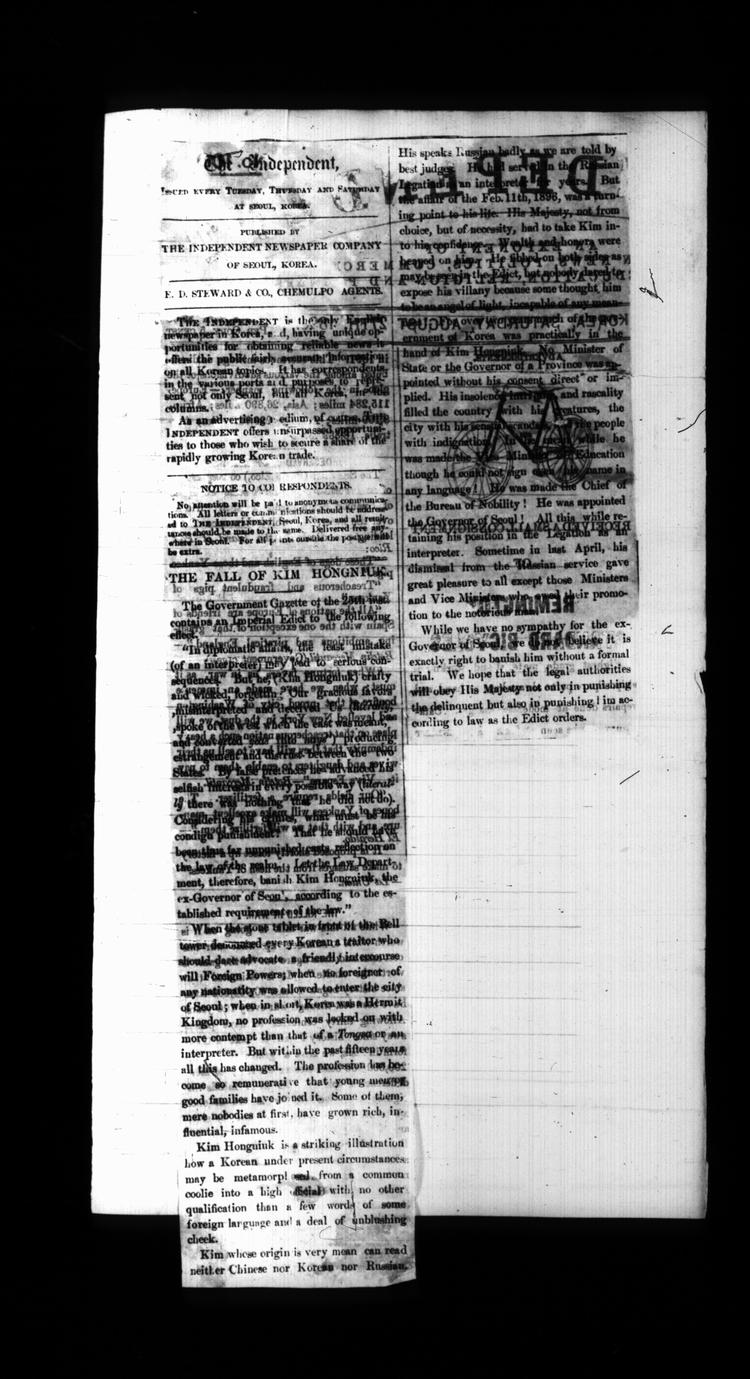 The Independent,
ISSUED EVERY TUESDAY, THURSDAY AND SATURDAY
AT SEOUL, KOREA.
PUBLISHED BY
THE INDEPENDENT NEWSPAPER COMPANY
OF SEOUL, KOREA.
E. D. STEWARD & CO., CHEMULPO AGENTS.
THE INDEPENDENT is the only English
newspaper in Korea, and, having unique op-
portunities for obtaining reliable news
offers the public fairly accurate information
on all Korean topics. It has correspondents
in the various ports and purposes to repre-
sent not only Seoul, but all Korea, in its
columns.
As an advertising medium, of course, THE
INDEPENDENT offers unsurpassed opportuni-
ties to those who wish to secure a share of the
rapidly growing Korean trade.
NOTICE TO CORRESPONDENTS.
No attention will be paid to anonymous communica-
tions. All letters or communications should be address-
ed to THE INDEPENDENT, Seoul, Korea, and all remit-
tances should be made to the same. Delivered free any-
where in Seoul. For all points outside the postage will
be extra.
THE FALL OF KIM HONGNIUK.
The Government Gazette of the 25th inst.
contains an Imperial Edict to the following
effect:
"In diplomatic affairs, the least mistake
(of an interpreter) may lead to serious con-
sequences. But he, (Kim Hongniuk) crafty
and wicked, forgot Our gracious favors
misinterpreted and deceived Us (literally
spoke of the west when the east was meant,
and converted ) producing
estrangement and distrust between the two
States. By false pretences he advanced his
selfish interests in every possible way (literal-
ly there was nothing that he did not do).
Considering his crimes, what must be his
condign punishment? That he should have
been thus far unpunished casts reflection on
the law of the realm. Let the Law Depart-
ment, therefore, banish Kim Hongniuk, the
ex-Governor of Seoul, according to the es-
tablished requirements of the law."
When the stone tablet in front of the Bell
tower denounced every Korean a traitor who
should dare advocate a friendly intercourse
will Foreign Powers; when no foreigner of
any nationality was allowed to enter the city
of Seoul; when in short, Korea was a Hermit
Kingdom, no profession was looked on with
more contempt than that of a Tongsa or an
interpreter. But within the past fifteen years
all this has changed. The profession has be-
come so remunerative that young men of
good families have joined it. Some of them,
mere nobodies at first, have grown rich, in-
fluential, infamous.
Kim Honguiuk is a striking illustration
how a Korean under present circumstances
may be metamorphosed from a common
coolie into a high official with no other
qualification than a few words of some
foreign language and a deal of unblushing
cheek.
Kim whose origin is very mean can read
neither Chinese nor Korean nor Russian.
His speaks Russian badly as we are told by
best judges. He had served in the Russian
Legation as an interpreter years. But
the affair of the Feb. 11th, 1896, was a turn-
ing point to his life. His Majesty, not from
choice, but of necessity, had to take Kim in-
to his confidence. Wealth and honors were
heaped on him. He fibbed on both sides as
may be seen in the Edict, but nobody dared to
expose his villany because some thought him
to be an angel of light, incapable of any mean-
over two years much of the gov-
ernment of Korea was practically in the
hand of Kim Hongniuk. No Minister of
State or the Governor of a Province was ap-
pointed without his consent direct or im-
plied. His insolence and rascality
filled the country with his creatures, the
city with his and the people
with indignation. In the mean while he
was made the Vice Minister of Education
though he could not sign even his name in
any language! He was made the Chief of
the Bureau of Nobility! He was appointed
the Governor of Seoul! All this while re-
taining his position in the Legation as an
interpreter. Sometime in last April, his
dismissal from the Russian service gave
great pleasure to all except those Ministers
and Vice Ministers their promo-
tion to the notorious
While we have no sympathy for the ex-
Governor of Seoul, we do not believe it is
exactly right to banish him without a formal
trial. We hope that the legal authorities
will obey His Majesty not only in punishing
the delinquent but also in punishing him ac-
cording to law as the Edict orders.